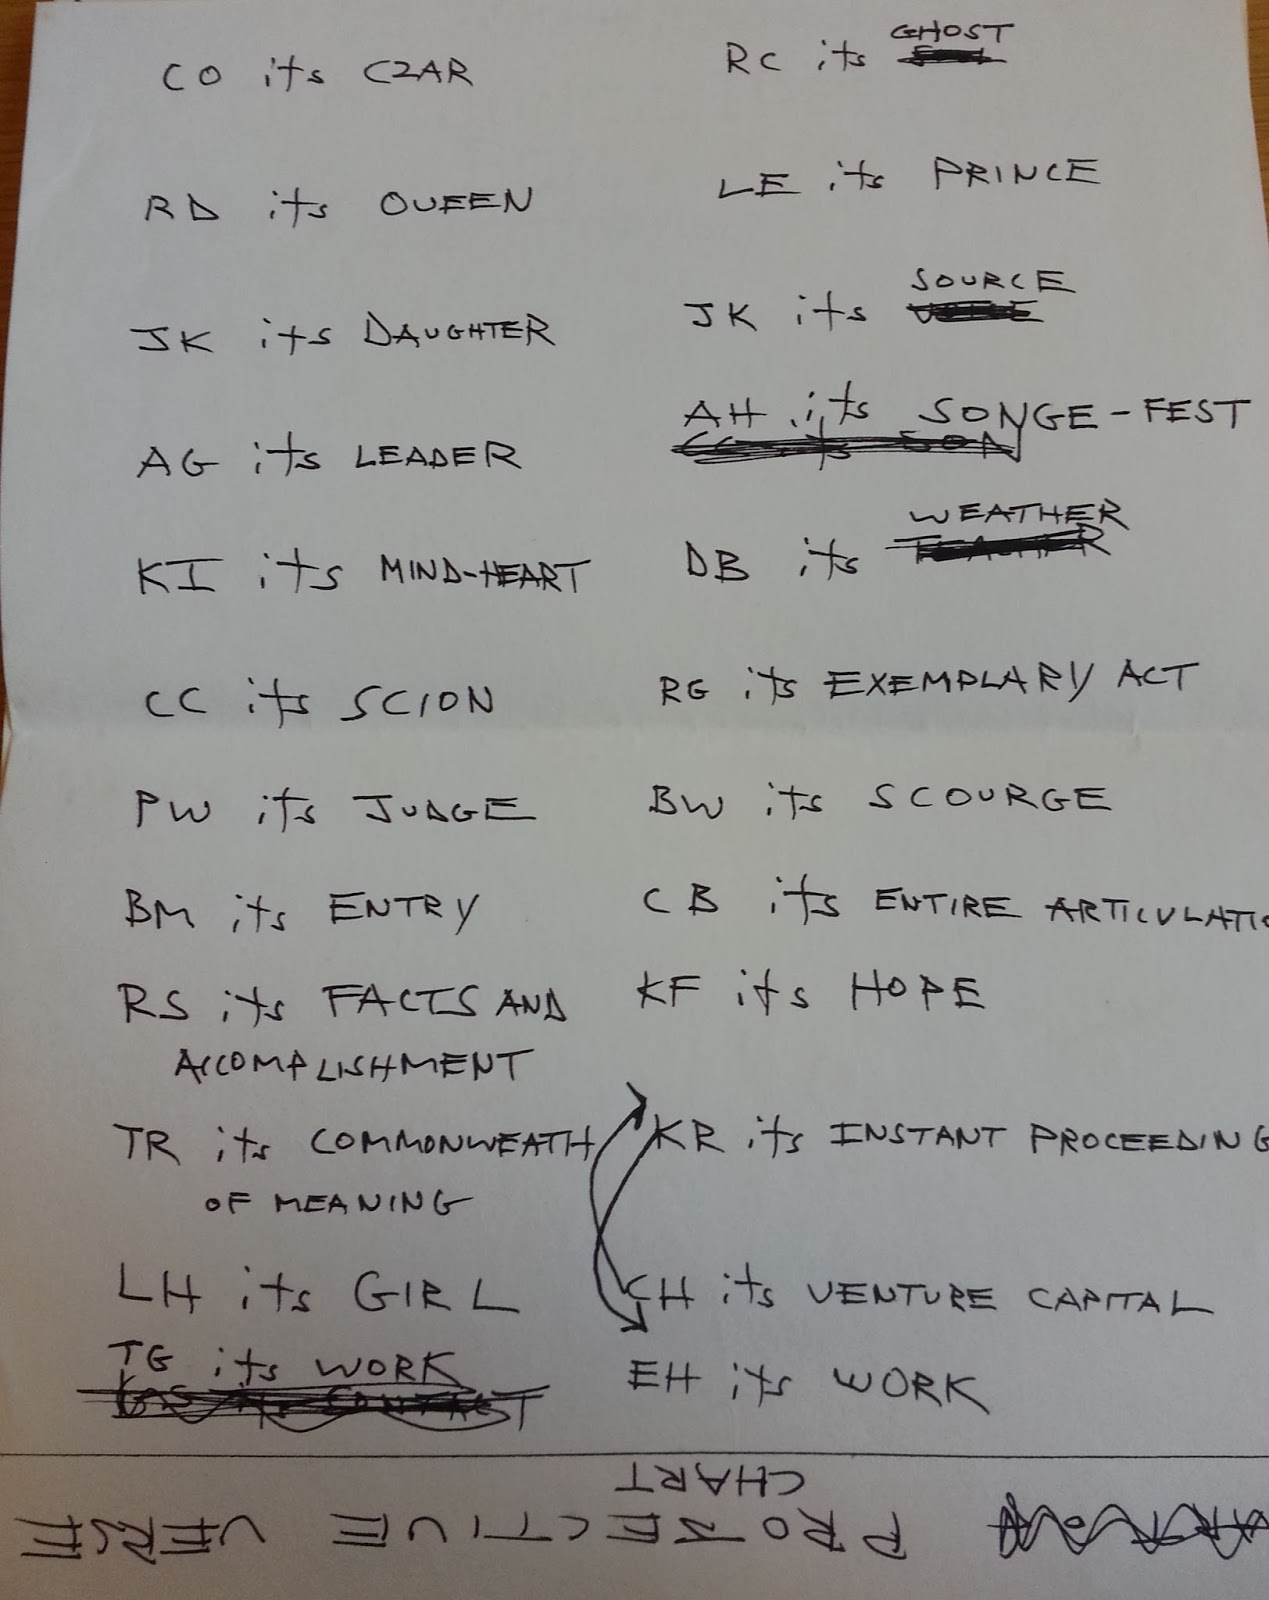 CO its CZAR
RD its QUEEN
JK its DAUGHTER
AG its LEADER
KI its MIND-HEART
CC its SCION
PW its JUDGE
BM its ENTRY
RS its FACTS AND
ACCOMPLISHMENT
TR its COMMONWEATH
OF MEANING
LH its GIRL
TG its WORK
RC its GHOST
LE its PRINCE
JK its SOURCE
AH its SONGE-FEST
DB its WEATHER
RG its EXEMPLARY ACT
BW its SCOURGE
CB its ENTIRE ARTICULATIO
KF its HOPE
KR its INSTANT PROCEEDING
CH its VENTURE CAPITAL
EH its WORK
PROJECTIVE VERSE
CHART